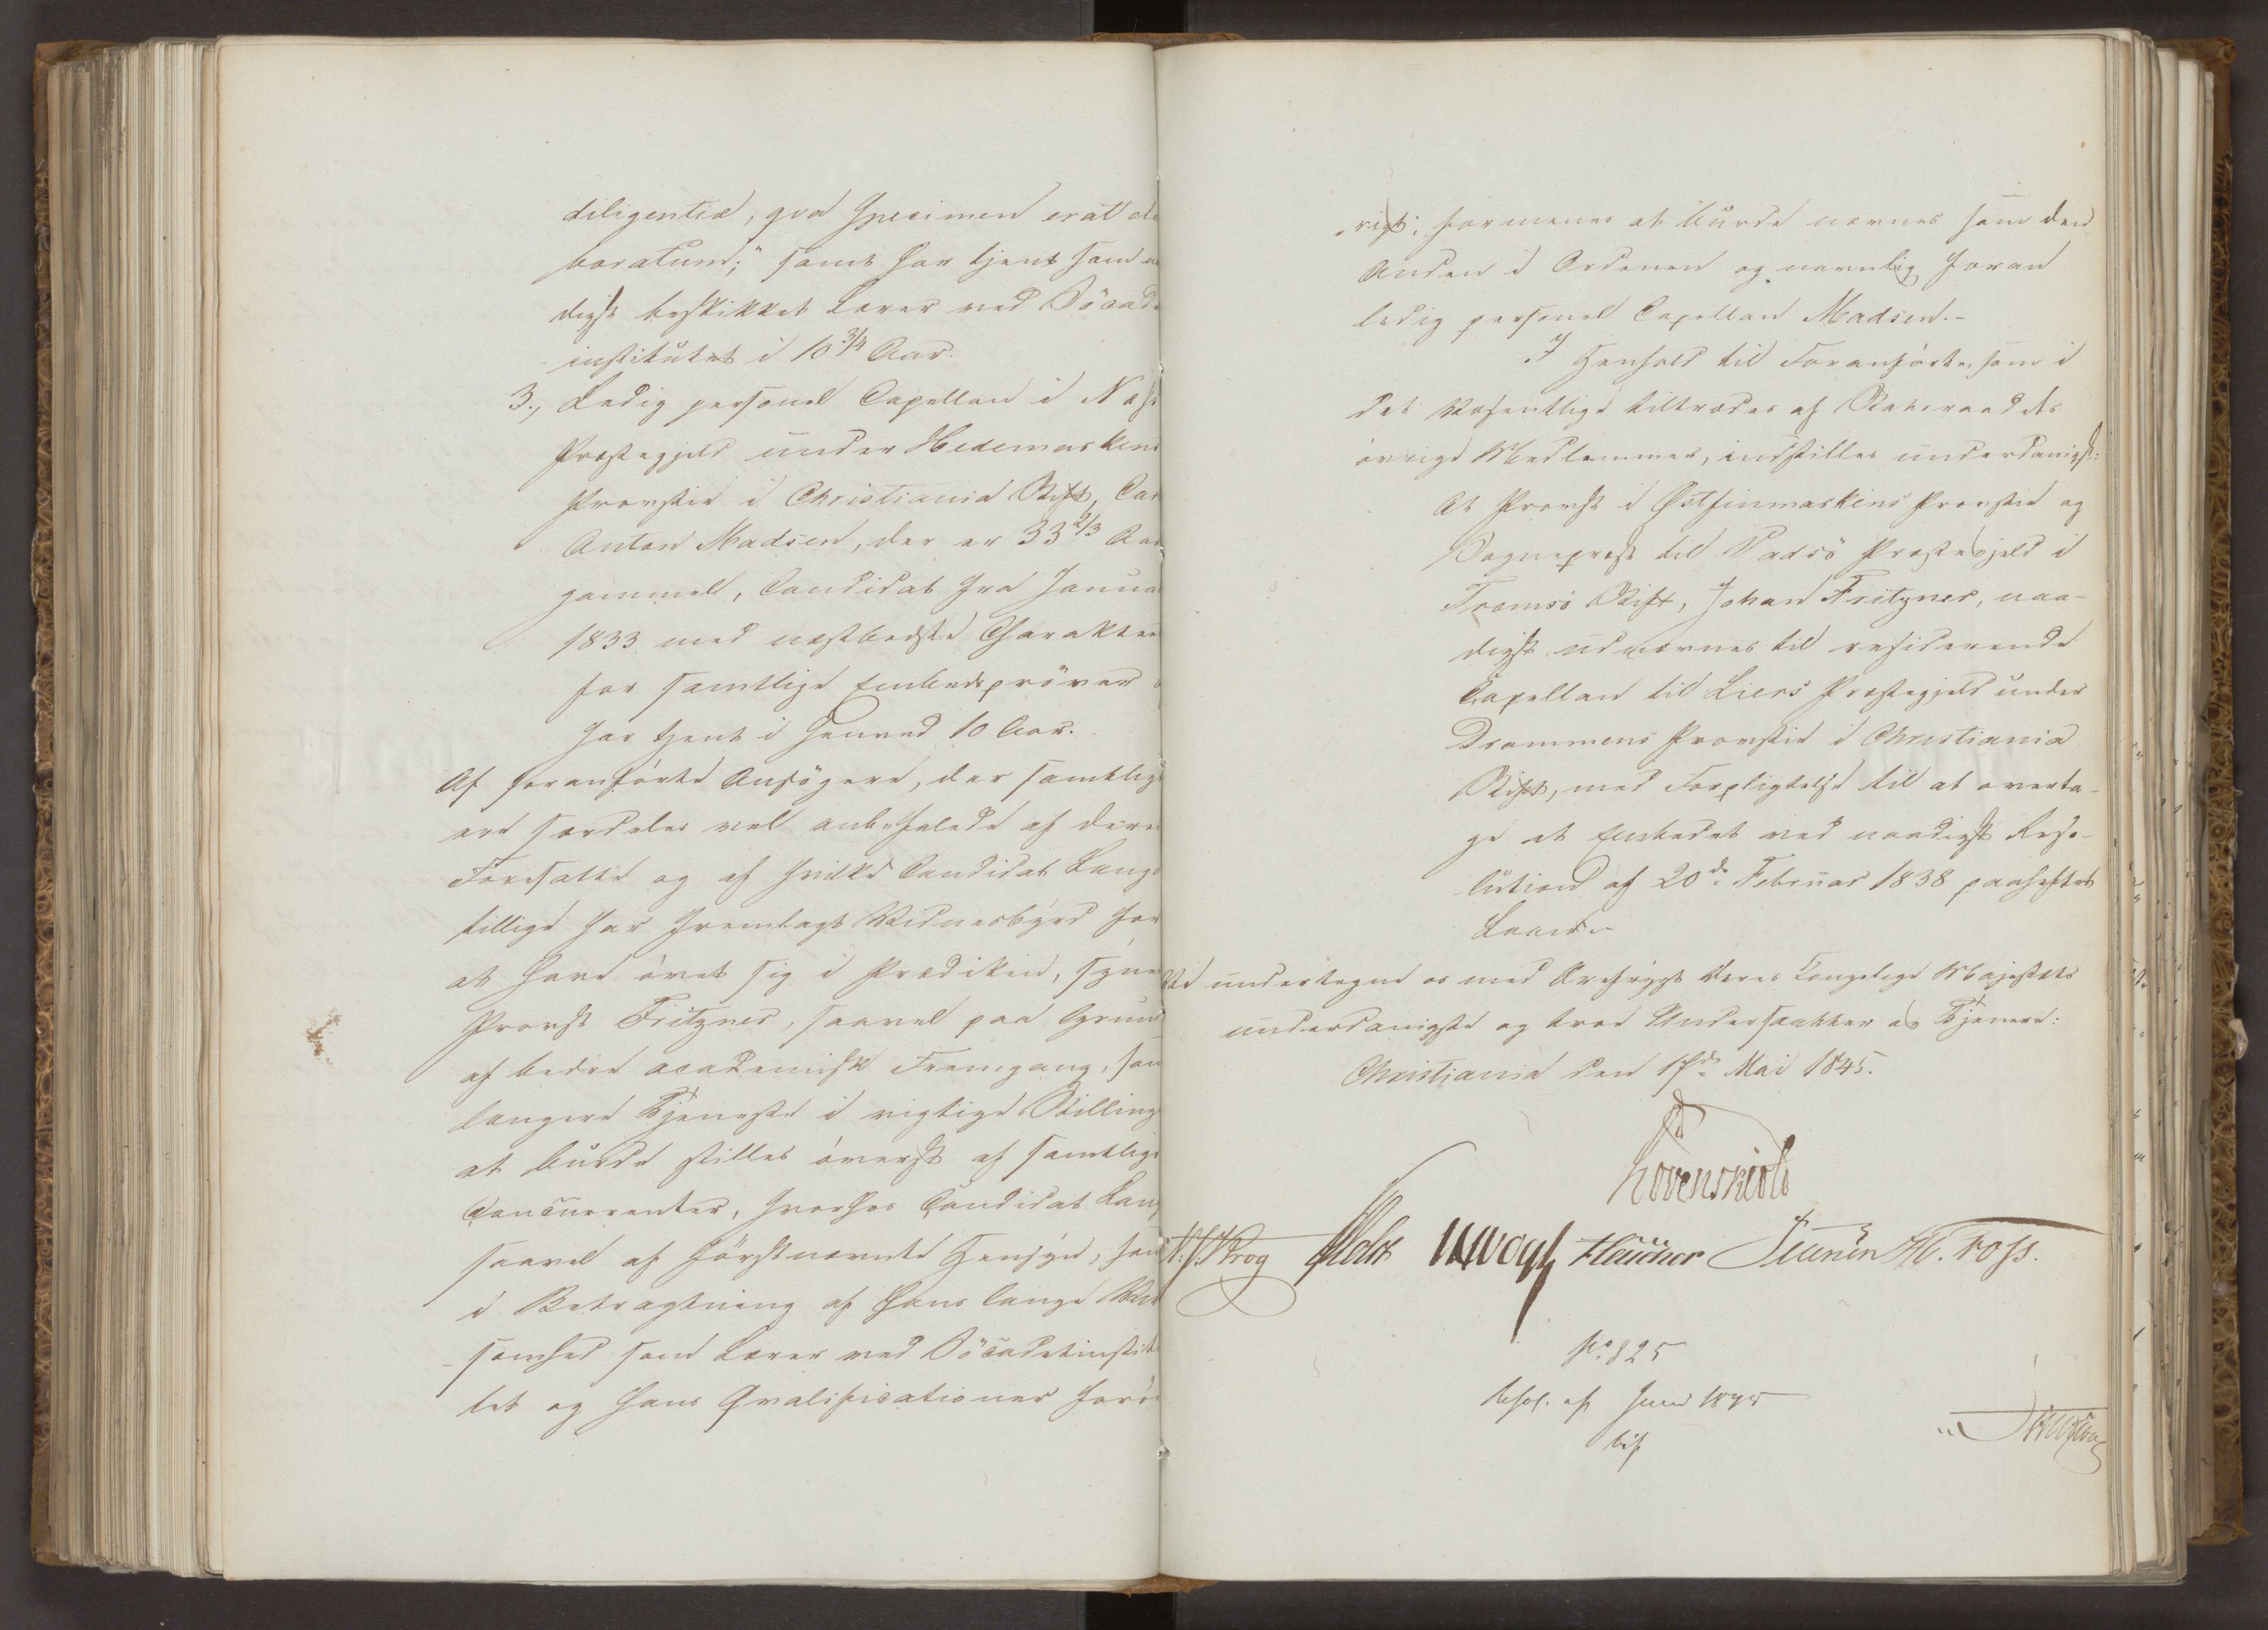 diligentia, qva Specimen erat ela
boratum;" samt har tjent som n
digst beskikket Lærer ved Söcadet
institutet i 10 3/4 Aar.
3., Ledig personel Capellan i Næs
Præstegjeld under Hedemarkens
Provstie i Christiania Stift, Carl
Anton Madsen, der er 33 2/3 Aar
gammel, Candidat fra Januar
1833 med næstbedste Charakteer
for samtlige Embedspröver
har tjent i Henved 10 Aar.
Af foranförte Ansögere, der samtlige
ere særdeles vel anbefalede af deres
Foresatte og af hvilke Candidat Lange
tillige har fremlagt Vidnesbyrd for
at have övet sig i Prædiken, synes
Provst Fritzner, saavel paa Grund
af bedre academisk Fremgang, som
længere Tjeneste i vigtige Stilling
at burde stilles överst af samtlige
Concurrenter, hvorhos Candidat Lang
saavel af förstnævnte Hensyn, som
i Betragtning af hans lange Virk
somhed som Lærer ved Söcadetinstitu
tet og hans Qvalificationer forö
vrigt, formenes at burde nævnes som den
Anden i Ordenen og navnlig foran
ledig personel Capellan Madsen.-
I Henhold til Foranförte, som i
det Væsentlige tiltrædes af Statsraadets
övrige Medlemmer, indstilles underdanigst:
At Provst i Østfinmarkens Provstie og
Sognepræst til Vadsö Præstegjeld i
Tromsö Stift, Johan Fritzner, naa-
digst udnævnes til residerende
Capellan til Liers Præstegjeld under
Drammens Provstie i Christiania
Stift, med Forpligtelse til at overta-
ge et Embedet ved naadigst Reso-
lution af 20de Februar 1838 paaheftet
Laan.-
Vi undertegne os med Ærefrygt Deres Kongelige Majestæts
underdanigste og troe Undersaatter og Tjenere:
Christiania den 17de Mai 1845.
Lövenskiold
Krog Holst Vogt Fleischer Foss.
No. 825
Resol. af Juni 1845